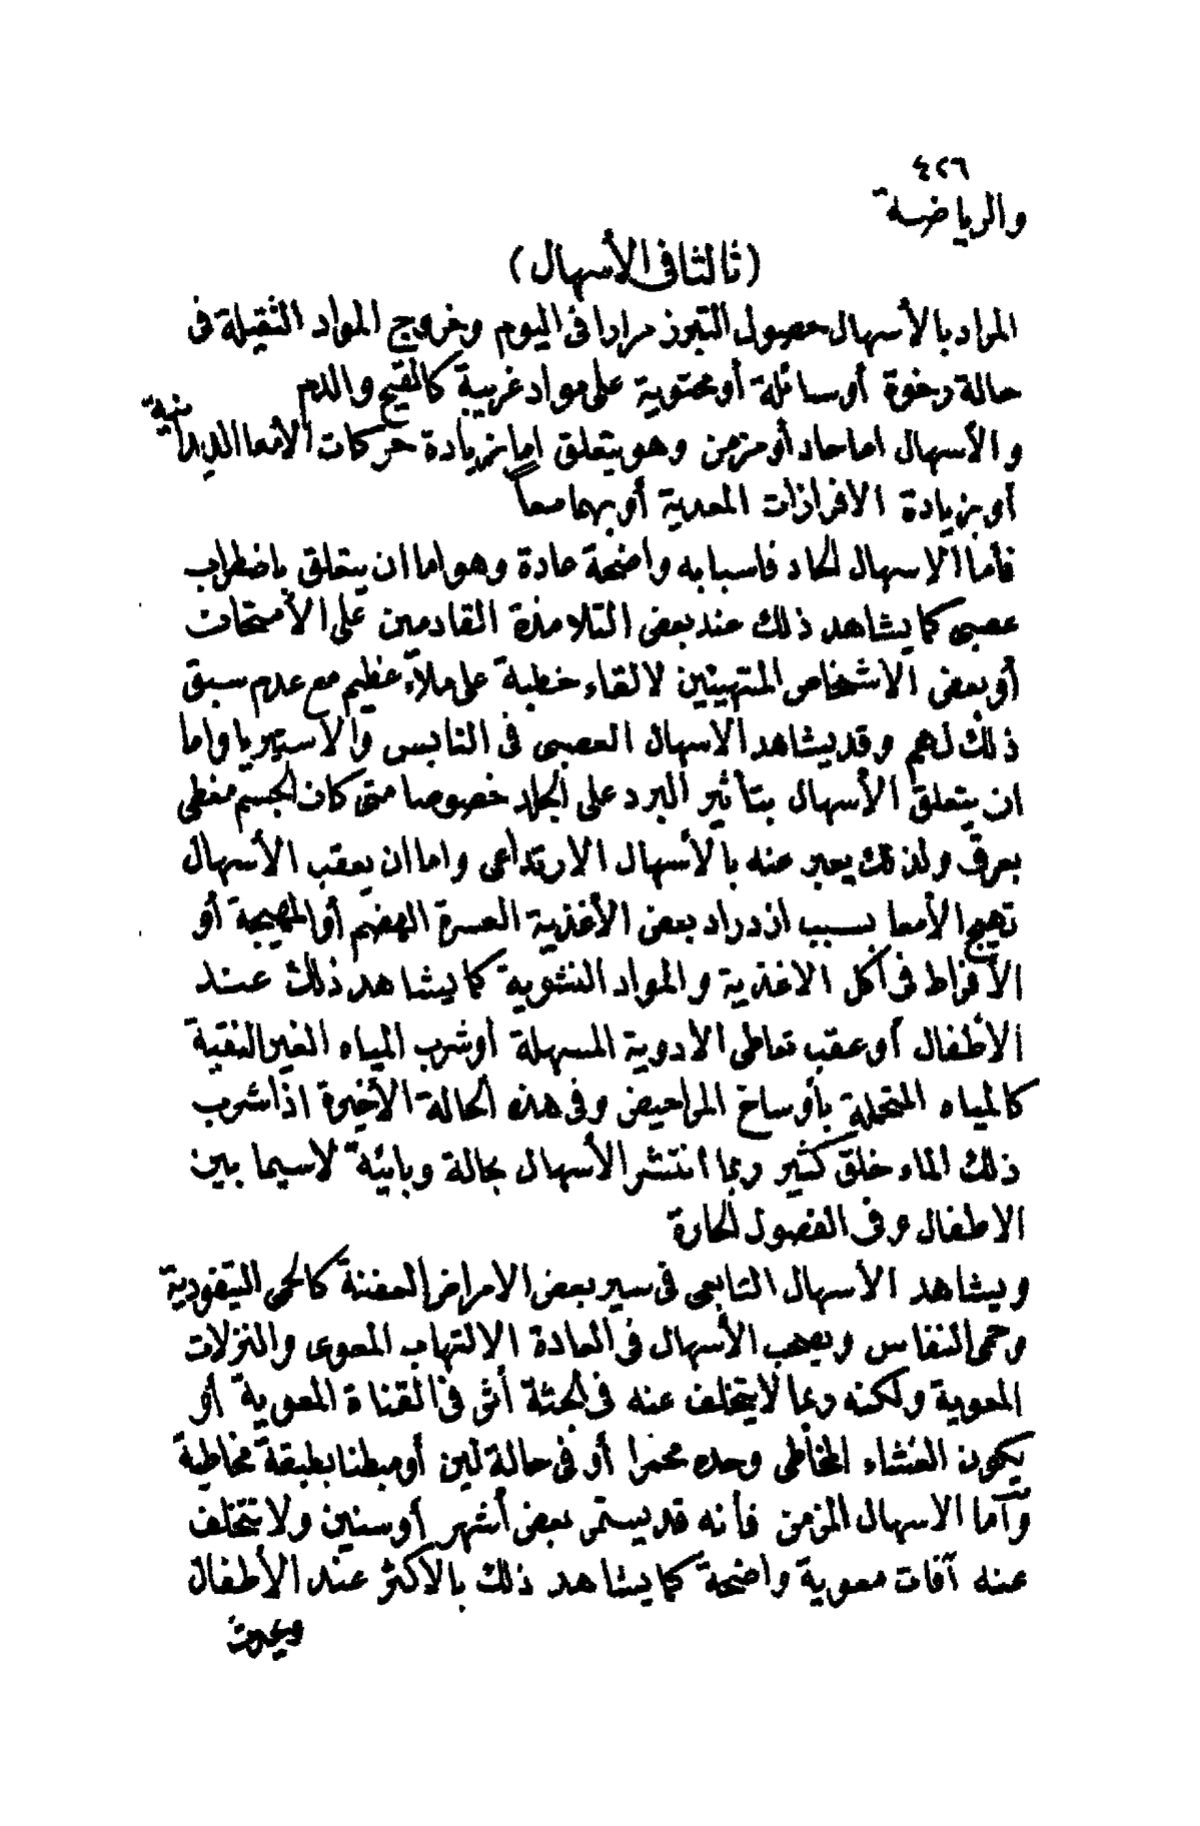 ٤٢٦
والرياضة
(ثالثا فى الأسهال)
المراد بالأسهال حصول التبرز مرارا فى اليوم وخروج المواد الثقيلة فى
حالة رخوة أو سائلة أو محتوية على مواد غريبة كالقيح والدم
والأسهال اما حاد أو مزمن وهو يتعلق اما بزيادة حركات الأمعا الديدانية
أو بزيادة الافرازات المعدية أو بهما معاً
فأما الاسهال الحاد فاسبابه واضحة عادة وهو اما ان يتعلق باضطراب
عصبى كما يشاهد ذلك عند بعض التلامذة القادمين على الأمتحانات
أو بعض الاشخاص المتهيئين لالقاء خطبة على ملاء عظيم مع عدم سبق
ذلك لهم وقد يشاهد الاسهال العصبى فى التابس والاستيريا واما
ان يتعلق الأسهال بتأثير البرد على الجلد خصوصا متى كان الجسم مغطى
بعرق ولذلك يعبر عنه بالأسهال الارتداعى واما ان يعقب الأسهال
تهيج الأمعا بسبب ازدراد بعض الأغذية العسرة الهضم أو المهيجة أو
الأفراط فى أكل الاغذية والمواد النشوية كما يشاهد ذلك عند
الأطفال أو عقب تعاطى الأدوية المسهلة أو شرب المياه الغير النقية
كالمياه المتحملة بأوساخ المراحيض وفى هذه الحالة الأخيرة اذا شرب
ذلك الماء خلق كثير ربما انتشر الأسهال بحالة وبائية لاسيما بين
الاطفال وفى الفصول الحارة
ويشاهد الأسهال التابعى فى سير بعض الامراض العفنة كالحمى التيفودية
وحمى النفاس ويصحب الأسهال فى العادة الالتهاب المعوى والنزلات
المعوية ولكنه ربما لا يتخلف عنه فى الجثة أثر فى القناة المعوية أو
يكون الغشاء المخاطى وحده محمرا أو فى حالة لين أو مبطنا بطبقة مخاطية
وأما الاسهال المزمن فأنه قد يستمر بعض أشهر أو سنين ولا تتخلف
عنه آفات معوية واضحة كما يشاهد ذلك بالأكثر عند الأطفال